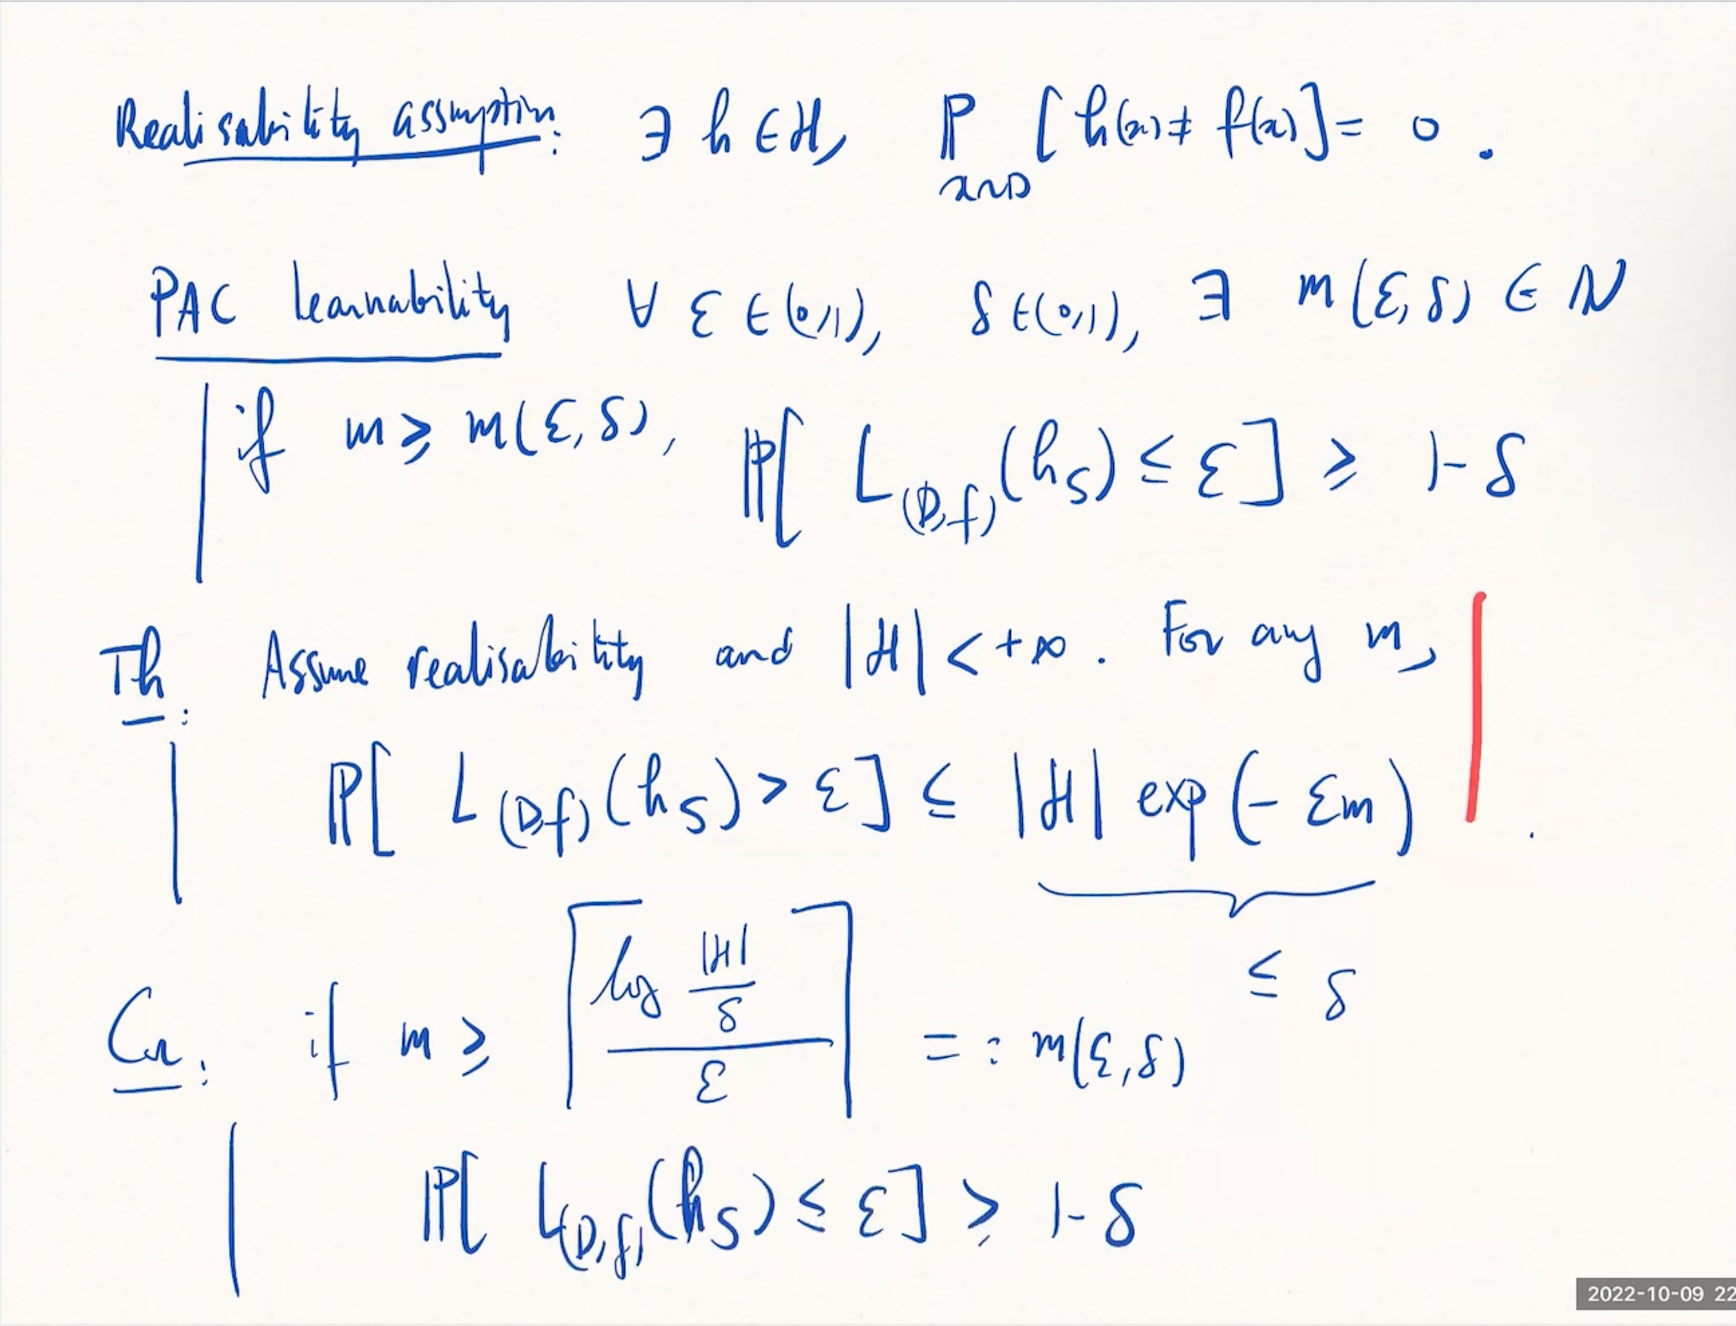 Realisability assumption: ∃ h ∈ H, P [h(x) ≠ f(x)] = 0.
x∼D
PAC learnability ∀ ε ∈ (0,1), δ ∈ (0,1), ∃ m(ε, δ) ∈ N
if m ≥ m(ε, δ), P[ L_(D,f) (h_S) ≤ ε ] ≥ 1-δ
Th: Assume realisability and |H| < +∞. For any m,
P[ L_(D,f) (h_S) > ε ] ≤ |H| exp(- εm)
≤ δ
Cor: if m ≥ ⌈ log |H|/δ / ε ⌉ =: m(ε, δ)
P[ L_(D,f) (h_S) ≤ ε ] ≥ 1-δ
2022-10-09 22